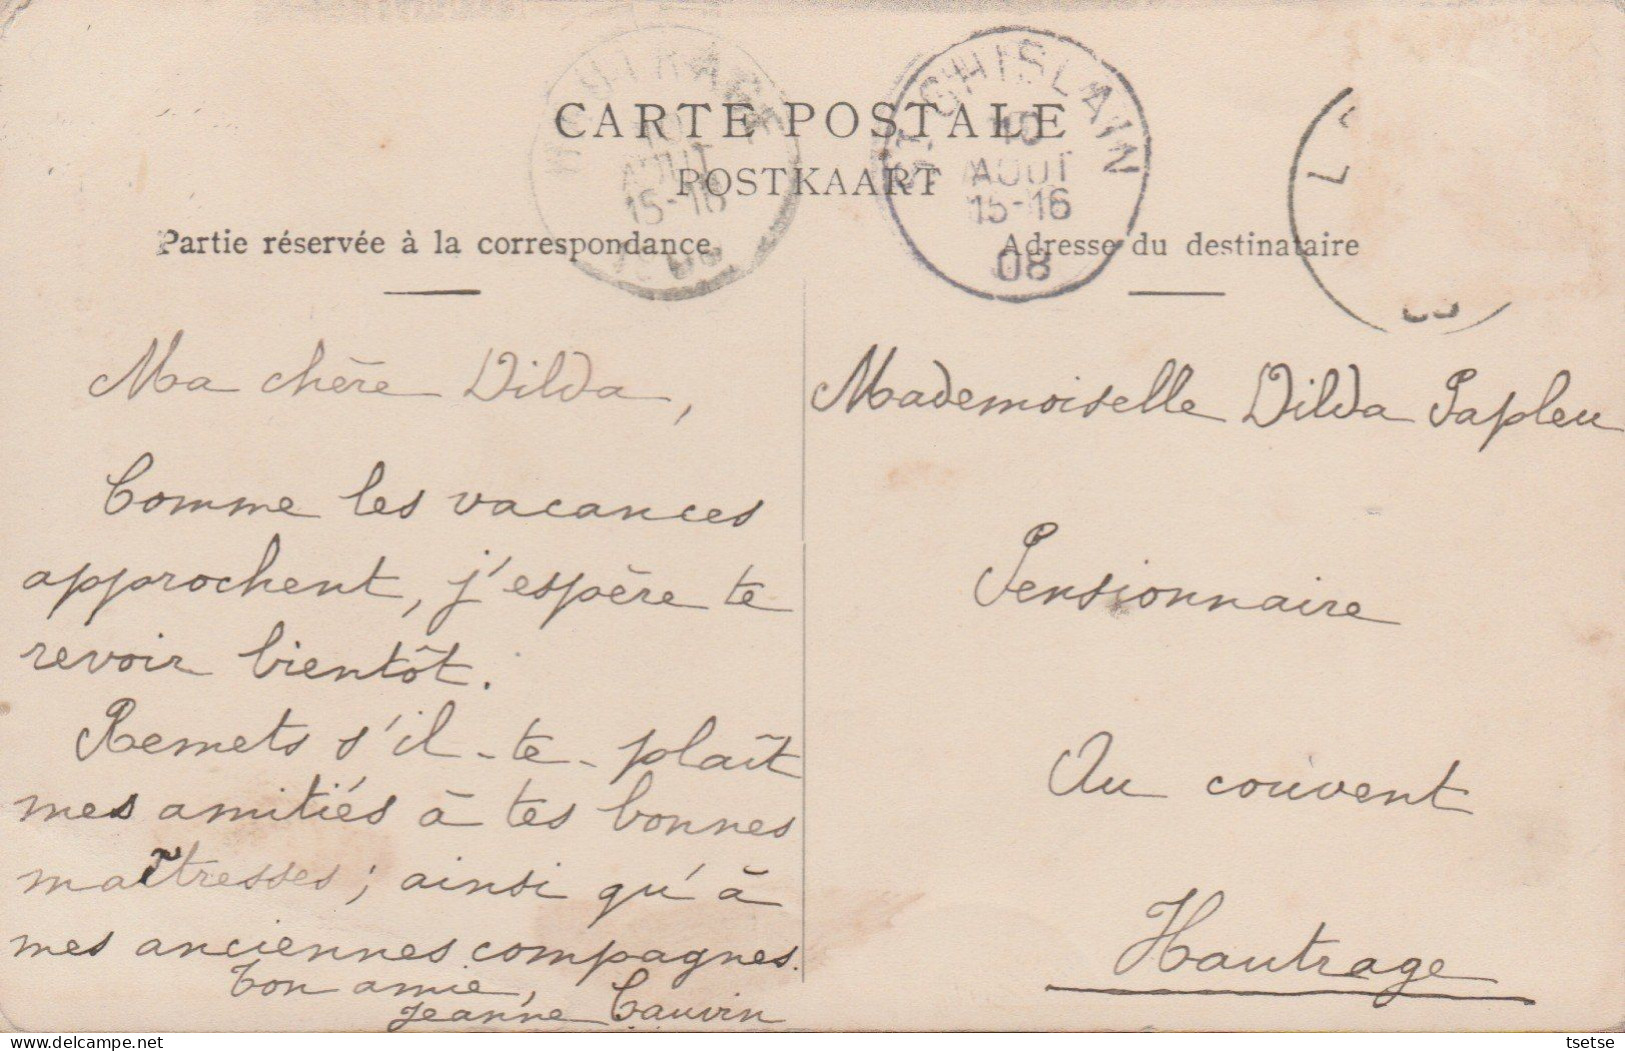 CARTE POSTALE
POSTKAART
Partie réservée à la correspondance
Adresse du destinataire
HAUTRAGE
10
AOUT
15-16
1908
ST GHISLAIN
10
AOUT
15-16
08
Ma chère Dilda,
Comme les vacances
approchent, j'espère te
revoir bientôt.
Remets s'il-te-plaît
mes amitiés à tes bonnes
maîtresses; ainsi qu'à
mes anciennes compagnes.
Ton amie,
Jeanne Cauvin
Mademoiselle Dilda Papleu
Pensionnaire
Au couvent
Hautrage
tsetse